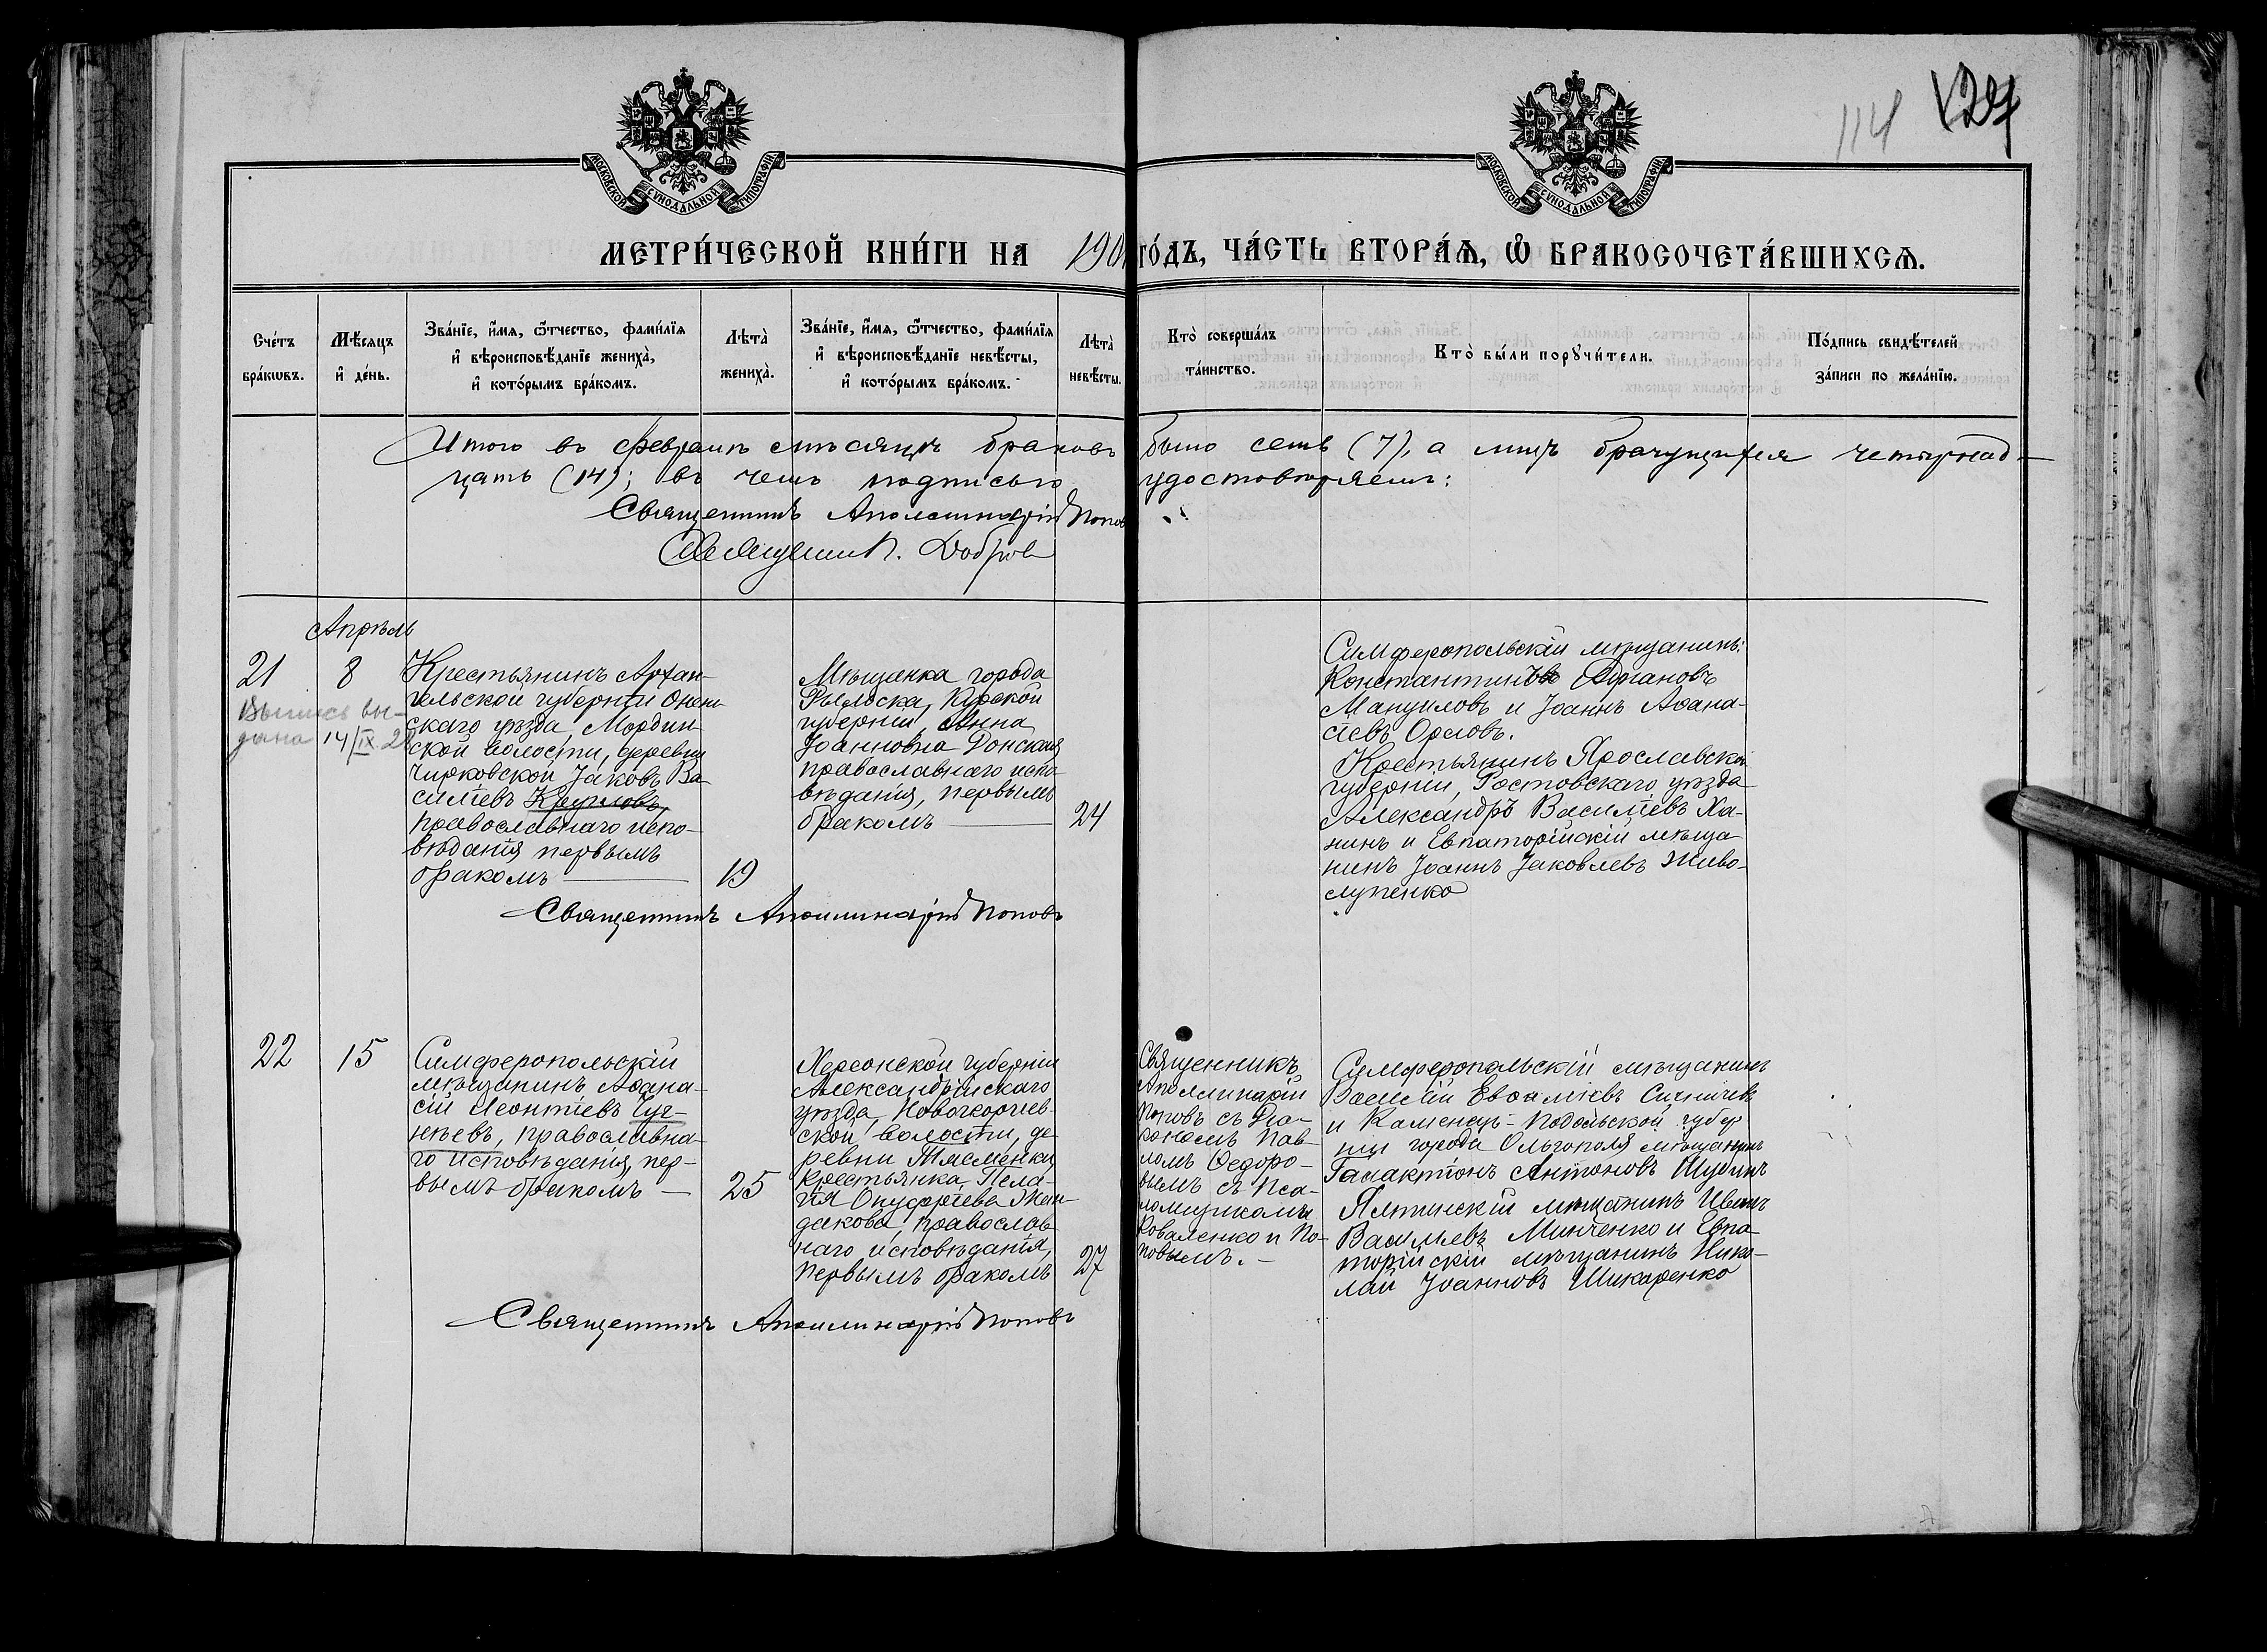 114
МОСКОВСКОЙ СУНОДАЛЬНОЙ ТИПОГРАФІИ.
МОСКОВСКОЙ СУНОДАЛЬНОЙ ТИПОГРАФІИ.
МЕТРИ́ЧЕСКОЙ КНИ́ГИ НА 190 ГО́ДЪ, ЧА́СТЬ ВТОРА́Ѧ, Ѽ БРАКОСОЧЕТА́ВШИХСѦ.
Сче́тъ бра́кѡвъ.
Мѣ́сяцъ и҆ де́нь.
Зва́нїе, и҆́мя, ѻ҆́тчество, фами́лїя и҆ вѣроисповѣ́данїе жениха̀, и҆ кото́рымъ бра́комъ.
Лѣта̀ жениха̀.
Зва́нїе, и҆́мя, ѻ҆́тчество, фами́лїя и҆ вѣроисповѣ́данїе невѣ́сты, и҆ кото́рымъ бра́комъ.
Лѣта̀ невѣ́сты.
Кто̀ соверша́лъ та́инство.
Кто̀ бы́ли порꙋчи́тели.
По́дпись свидѣ́телей за́писи по жела́нїю.
Итого въ Февралѣ мѣсяцѣ браковъ было семь (7), а лицъ брачущихся четырнад-
цать (14); въ чемъ подписью удостовѣряемъ:
Священникъ Аполлинарій Поповъ
Добровъ
Апрѣль
21
8
Выпись вы-
дана 14/IX 2
Крестьянинъ Архан-
гельской губерніи Онеж-
скаго уѣзда, Мордин-
ской волости, деревни
Чирковской Іаковъ Ва-
силіевъ Кругловъ,
православнаго испо-
вѣданія первымъ
бракомъ
19
Мѣщанка города
Рыльска, Курской
губерніи, Анна
Іоанновна Донская
православнаго испо-
вѣданія, первымъ
бракомъ
24
Симферопольскій мѣщанинъ:
Мануиловъ и Іоаннъ Аѳана-
сіевъ Орловъ.
Крестьянинъ Ярославской
губерніи, Ростовскаго уѣзда
Александръ Василіевъ Ха-
нинъ и Евпаторійскій мѣща-
нинъ Іоаннъ Іаковлевъ Живо-
лупенко
Священникъ Аполлинарій Поповъ
22
15
Симферопольскій
мѣщанинъ Аѳана-
сій Леонтіевъ Чуг-
нѣевъ, православна-
го исповѣданія, пер-
вымъ бракомъ
25
Херсонской губерніи
Александрійскаго
уѣзда, Новогеоргіев-
ской волости, де-
ревни Тясменки
крестьянка, Пела-
гія Онуфріева Жан-
дакова, православ-
наго исповѣданія,
первымъ бракомъ
27
Священникъ
Аполлинарій
Поповъ съ Діа-
кономъ Пав-
ломъ Ѳедоро-
вымъ съ Пса-
ломщиками
Коваленко и По-
повымъ.
Симферопольскій мѣщанинъ
Василій Евѳиміевъ
и Каменецъ-Подольской губер
ніи города Ольгополя мѣщанинъ
Галактіонъ Антоновъ Шубинъ
Ялтинскій мѣщанинъ Иванъ
Василіевъ Минченко и Евпа-
торійскій мѣщанинъ Нико-
лай Іоанновъ Шикаренко
Священникъ Аполлинарій Поповъ